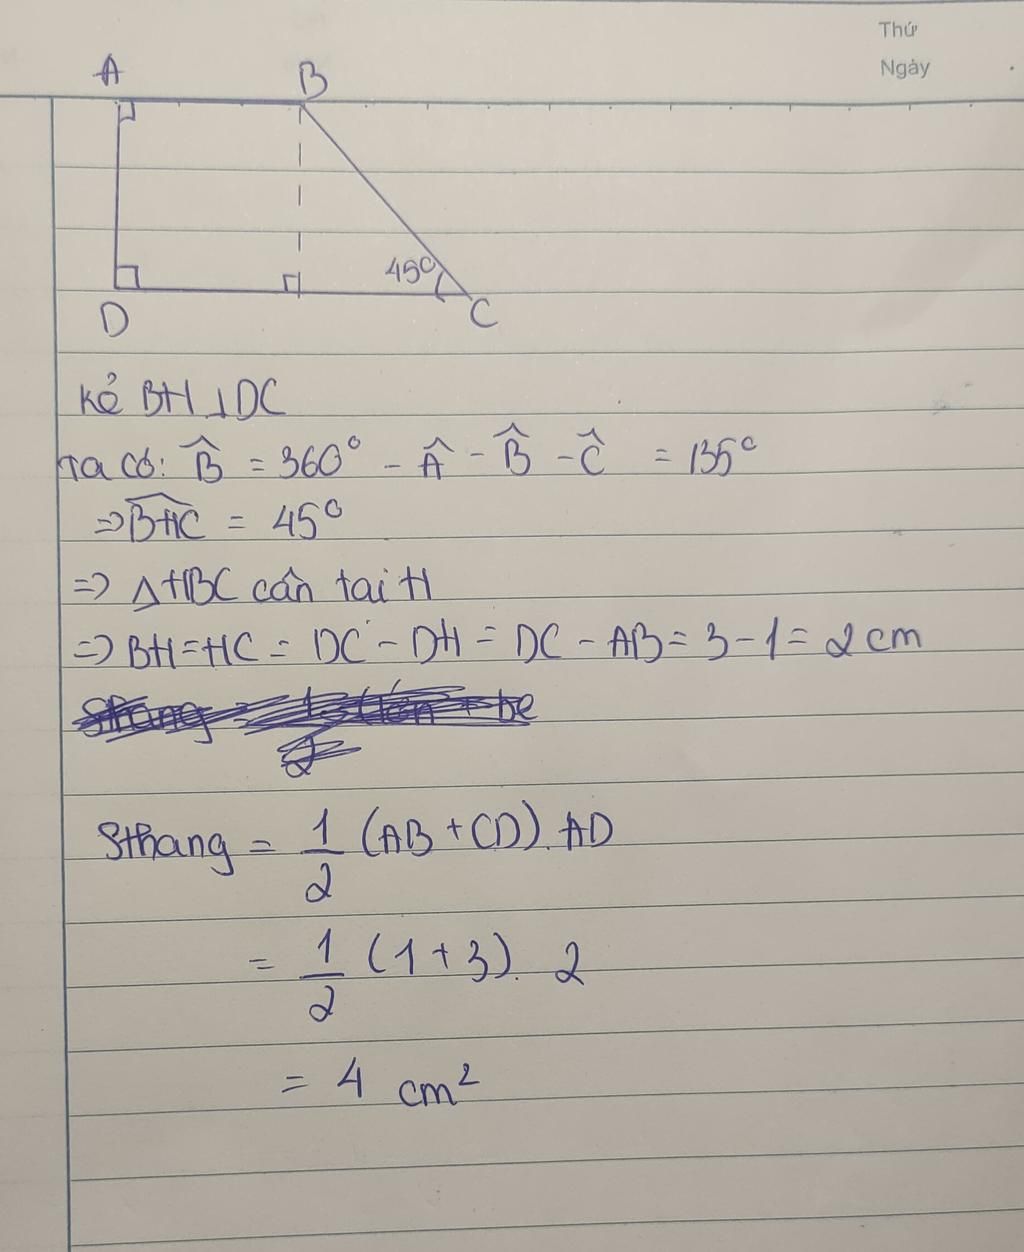 Thứ
Ngày
A B
45°
D C
Kẻ BH ⊥ DC
Ta có: B̂ = 360° - Â - B̂ - Ĉ = 135°
=> B̂HC = 45°
=> ΔHBC cân tai H
=> BH = HC = DC - DH = DC - AB = 3 - 1 = 2 cm
Sthang = 1/2 (AB + CD). AD
= 1/2 (1 + 3). 2
= 4 cm²